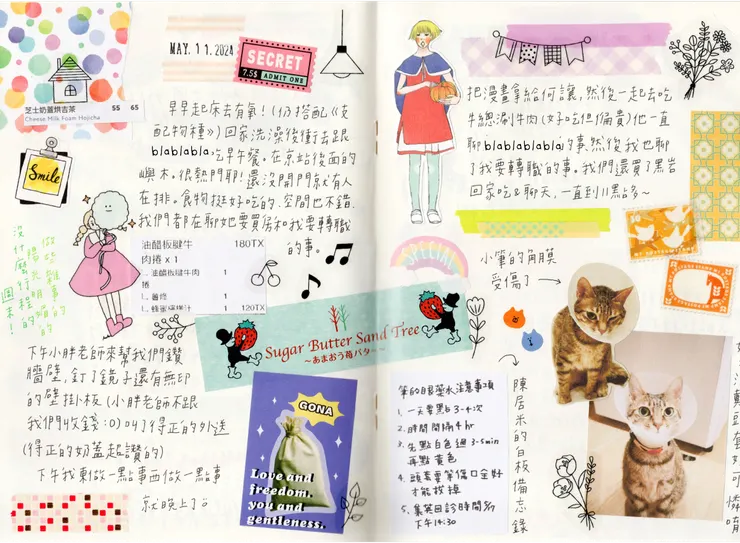 芝士奶蓋烘吉茶 55 65
Cheese Milk Foam Hojicha
MAY. 11. 2024
SECRET
7.5$ ADMIT ONE
Smile
早早起床去有氧！(仍搭配《支
配物種》) 回家洗澡後衝去跟
blablablabla吃早午餐。在京站後面的
嶼木。很熱門耶！還沒開門就有人
在排。食物挺好吃的、空間也不錯。
我們都在聊她要買房和我要轉職
的事。
油醋板腱牛 180TX
肉捲 x 1
油醋板腱牛肉 1
捲
1
1 120TX
沒什麼行程的
週末！
Sugar Butter Sand Tree
～あまおう苺バター～
下午小胖老師來幫我們鑽
牆壁，釘了鏡子還有無印
的壁掛板(小胖老師不跟
我們收錢:0) 叫了得正的外送
(得正的奶蓋超讚的)
下午我東做一點事西做一點事
就晚上了
GONA
Love and
freedom.
you and
gentleness.
把漫畫拿給何讓，然後一起去吃
牛總涮牛肉(好吃但偏貴)他一直
聊blablablabla的事然後我也聊
了我要轉職的事。我們還買了黑岩
回家吃&聊天，一直到11點多～
小筆的角膜
受傷了
筆的眼藥水注意事項
1. 一天要點3-4次
2. 時間間隔4hr
3. 先點白色過3-5min
再點黃色
4. 頭套要等傷口全好
才能拔掉
5. 回診時間5/7
下午14:30
陳居米的白板備忘錄